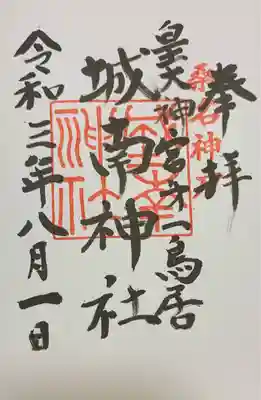 奉拝
桑名神
皇大神宮才一鳥居
城南神社
令和三年八月一日